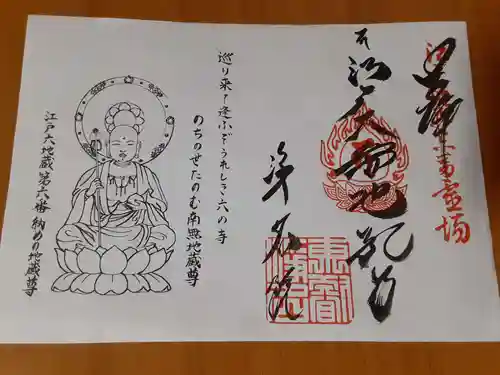 奉拝
番霊場
地蔵尊
浄名院
巡り来て逢ふぞうれしき六の寺
のちのせたのむ南無地蔵尊
江戸六地蔵 第六番 納めの地蔵尊